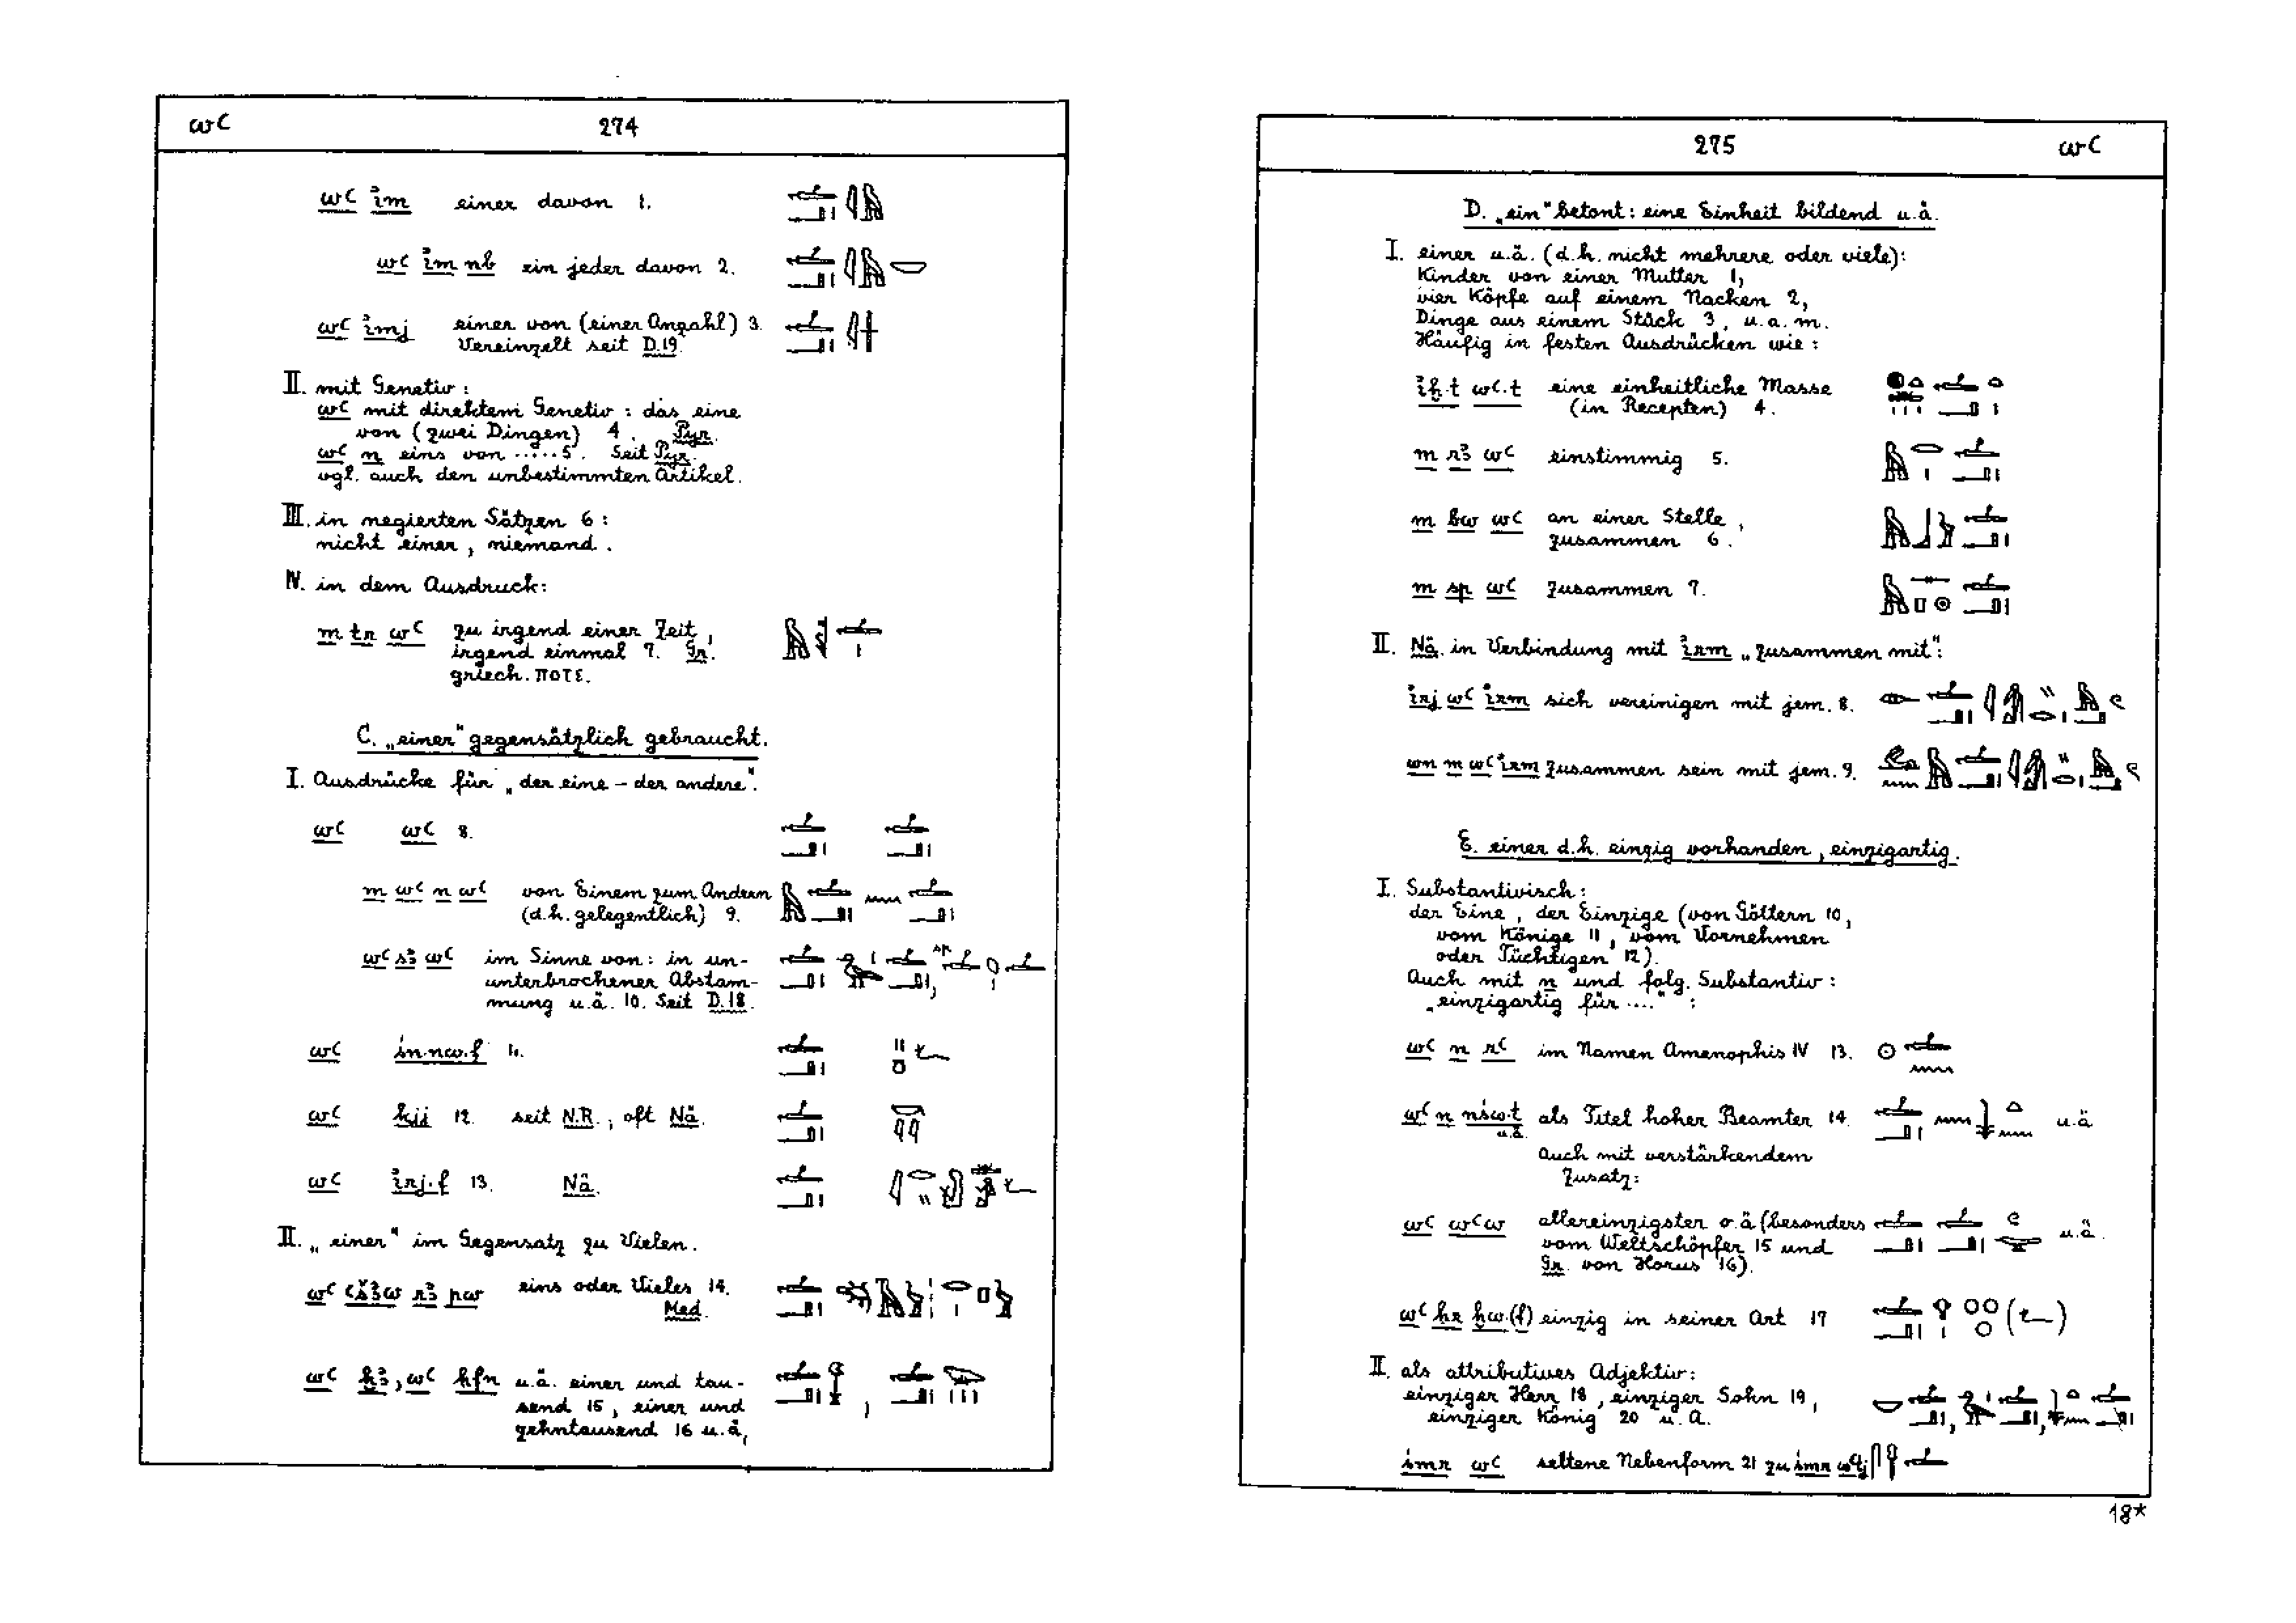 wꜥ 274
wꜥ im einer davon 1.
wꜥ im nb ein jeder davon 2.
wꜥ imj einer von (einer Anzahl) 3.
Vereinzelt seit D.19.
II. mit Genetiv:
wꜥ mit direktem Genetiv: das eine
von (zwei Dingen) 4. Pyr.
wꜥ n eins von ..... 5. Seit Pyr.
vgl. auch den unbestimmten Artikel.
III. in negierten Sätzen 6:
nicht einer, niemand.
IV. in dem Ausdruck:
m tr wꜥ zu irgend einer Zeit,
irgend einmal 7. Gr.
griech. ΠΟΤΕ.
C. „einer" gegensätzlich gebraucht.
I. Ausdrücke für „der eine – der andere".
wꜥ wꜥ 8.
m wꜥ n wꜥ von Einem zum Andern
(d.h. gelegentlich) 9.
wꜥ sꜣ wꜥ im Sinne von: in un-
unterbrochener Abstam-
mung u.ä. 10. Seit D.18.
wꜥ śn.nw.f 11.
wꜥ kjj 12. seit N.R., oft Nä.
wꜥ irj.f 13. Nä.
II. „einer" im Gegensatz zu Vielen.
wꜥ ꜥšꜣw rꜣ pw eins oder Vieles 14.
Med.
wꜥ ḫꜣ, wꜥ ḥfn u.ä. einer und tau-
send 15, einer und
zehntausend 16 u.ä,
275 wꜥ
D. „ein" betont: eine Einheit bildend u.ä.
I. einer u.ä. (d.h. nicht mehrere oder viele):
Kinder von einer Mutter 1,
vier Köpfe auf einem Nacken 2,
Dinge aus einem Stück 3, u.a.m.
Häufig in festen Ausdrücken wie:
iḫ.t wꜥ.t eine einheitliche Masse
(in Recepten) 4.
m rꜣ wꜥ einstimmig 5.
m bw wꜥ an einer Stelle,
zusammen 6.
m sp wꜥ zusammen 7.
II. Nä. in Verbindung mit irm „zusammen mit":
irj wꜥ irm sich vereinigen mit jem. 8.
wn m wꜥ irm zusammen sein mit jem. 9.
E. einer d.h. einzig vorhanden, einzigartig.
I. Substantivisch:
der Eine, der Einzige (von Göttern 10,
vom Könige 11, vom Vornehmen
oder Tüchtigen 12).
Auch mit n und folg. Substantiv:
„einzigartig für ....":
wꜥ n rꜥ im Namen Amenophis IV 13.
wꜥ n nśw.t u.ä. als Titel hoher Beamter 14. u.ä
Auch mit verstärkendem
Zusatz:
wꜥ wꜥw allereinzigster o.ä (besonders u.ä.
vom Weltschöpfer 15 und
Gr. von Horus 16).
wꜥ ḥr ḫw.(f) einzig in seiner Art 17
II. als attributives Adjektiv:
einziger Herr 18, einziger Sohn 19,
einziger König 20 u. a.
śmr wꜥ seltene Nebenform 21 zu śmr wꜥtj
18*